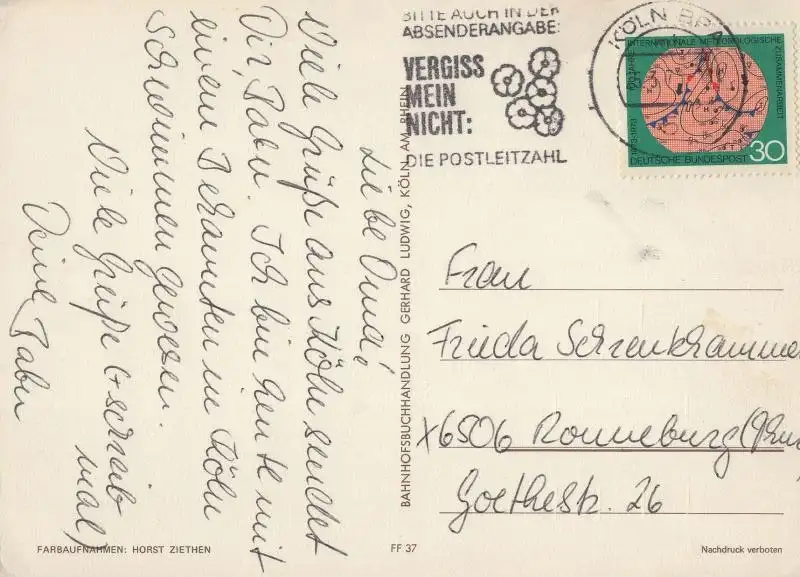 Liebe Oma!
Viele Grüße aus Köln sendet
Dir, Gabu. Ich bin heute mit
einem Bekannten in Köln
schwimmen gewesen.
Viele Grüße (+ schreib
mal)
Deine Gabu
BITTE AUCH IN DER
ABSENDERANGABE:
VERGISS
MEIN
NICHT:
DIE POSTLEITZAHL
KÖLN
100 JAHRE INTERNATIONALE METEOROLOGISCHE ZUSAMMENARBEIT
1873-1973
DEUTSCHE BUNDESPOST 30
Frau
Frieda Schrenkhammer
X6506 Ronneburg
Goethestr. 26
BAHNHOFSBUCHHANDLUNG GERHARD LUDWIG, KÖLN AM RHEIN
FARBAUFNAHMEN: HORST ZIETHEN
FF 37
Nachdruck verboten